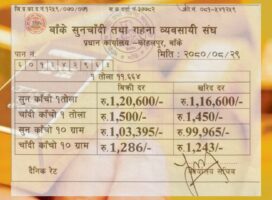 बाँके सुनचाँदी तथा गहना व्यवसायी संघ
प्रधान कार्यालय -कोहलपुर, बाँके
पा न मिति : २०८०/०८/२९
१ तोला ११.६६४
बिक्री दर खरिद दर
सुन काँचो १तोला रु.1,20,600/- रु.1,16,600/-
चाँदी काँचो १ तोला रु.1,500/- रु.1,450/-
सुन काँचो १० ग्राम रु.1,03,395/- रु.99,965/-
चाँदी काँचो १० ग्राम रु.1,286/- रु.1,243/-
दैनिक रेट